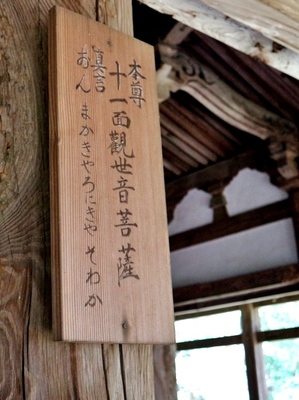 本尊
十一面観世音菩薩
真言
おん まかきやろにきや そわか